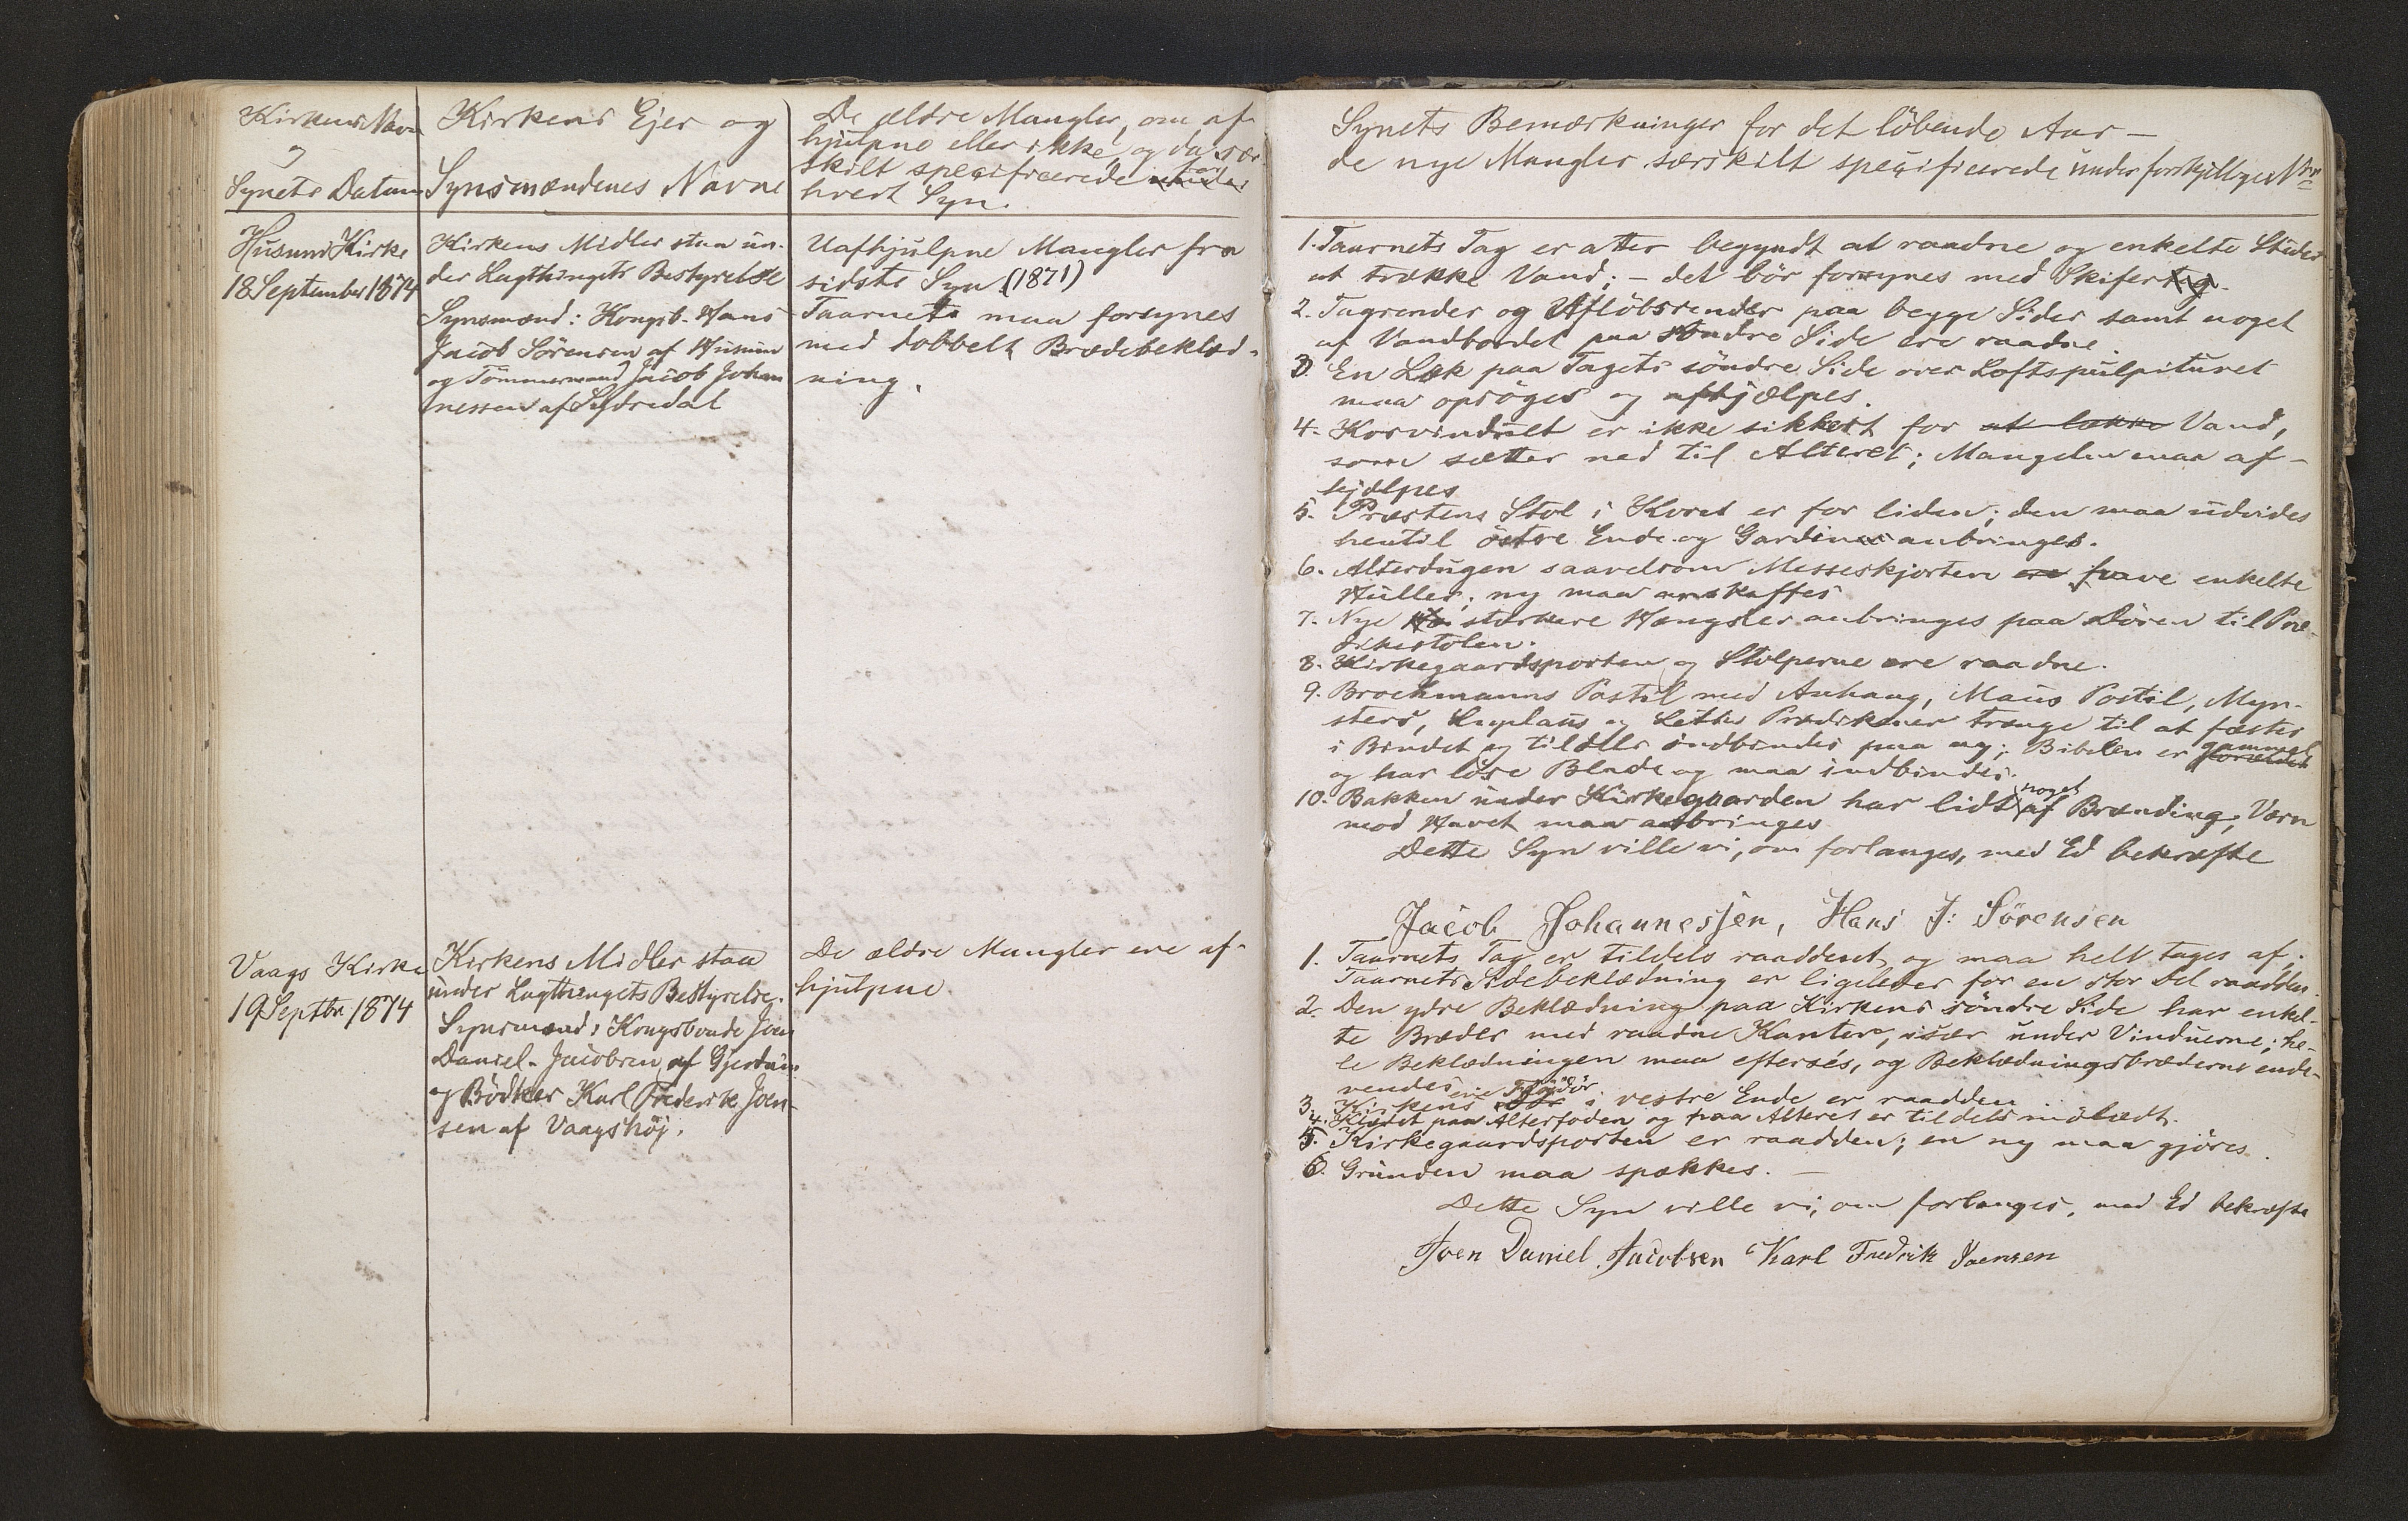 Kirkens Navn
og
Synets Datum
Kirkens Ejer og
Synsmændenes Navne
De ældre Mangler, om af-
hjulpne eller ikke, og da sær-
skilt specificerede for
hvert Syn.
Husum Kirke
18 September 1874
Kirkens Midler staa un-
der Lagthingets Bestyrelse
Synsmænd: Kongsb. Hans
Jacob Sörensen af Husum
og Tömmermand Jacob Johan
nessen af Sydredal
Uafhjulpne Mangler fra
sidste Syn (1871)
Taarnet maa forsynes
med dobbelt Brædebeklæd-
ning.
Vaags Kirke
19 Septbr 1874
Kirkens Midler staa
under Lagthingets Bestyrelse.
Synsmænd: Kongsbonde Joen
Daniel Jacobsen af Gjerdum
og Bödker Karl Frederik Joen-
sen af Vaagshöj.
De ældre Mangler ere af-
hjulpne
Synets Bemærkninger for det löbende Aar –
de nye Mangler særskilt specificerede under forskjellige Nr
1. Taarnets Tag er atter begyndt at raadne og enkelte Steder
at trække Vand; – det bör forsynes med Skifer
2. Tagrender og Aflöbsrender paa begge Sider samt noget
af Vandbordet paa söndre Side ere raadne.
3. En Læk paa Tagets söndre Side over Loftspulpituret
maa opsöges og afhjælpes.
4. Korvinduet er ikke sikkert for at lække Vand,
som sætter ned til Alteret; Mangelen maa af-
hjælpes
5. Præstens Stol i Koret er for liden; den maa udvides
hentil östre Ende og Gardiner anbringes.
6. Alterdugen saavelsom Messeskjorten have enkelte
Huller; ny maa anskaffes
7. Nye stærkere Hængsler anbringes paa Dören til Præ-
dikestolen.
8. Kirkegaardsporten og Stolperne ere raadne.
9. Brochmanns Postil med Anhang, Maus Postil, Myn-
sters, og Prædikener trænge til at fæstes
i Bindet og tildels indbindes paa ny; Bibelen er gammel
og har löse Blade og maa indbindes.
10. Bakken under Kirkegaarden har lidt noget af Brænding; Værn
mod Havet maa anbringes
Dette Syn ville vi, om forlanges, med Ed bekræfte
Jacob Johannesjen, Hans J: Sörensen
1. Taarnets Tag er tildels raaddent og maa helt tages af.
Taarnets Sidebeklædning er ligeledes for en stor Del raadden.
2. Den ydre Beklædning paa Kirkens söndre Side har enkel-
te Bræder med raadne Kanter, især under Vinduerne; he-
le Beklædningen maa efterses, og Beklædningsbræderne ende-
vendes
3. Kirkens ene Flöjdör i vestre Ende er raadden
4. Klædet paa Alterfoden og paa Alteret er tildels mölædt.
5. Kirkegaardsporten er raadden; en ny maa gjöres.
6. Grunden maa spækkes. –
Dette Syn ville vi, om forlanges, med Ed bekræfte
Joen Daniel Jacobsen Karl Fredrik Joensen